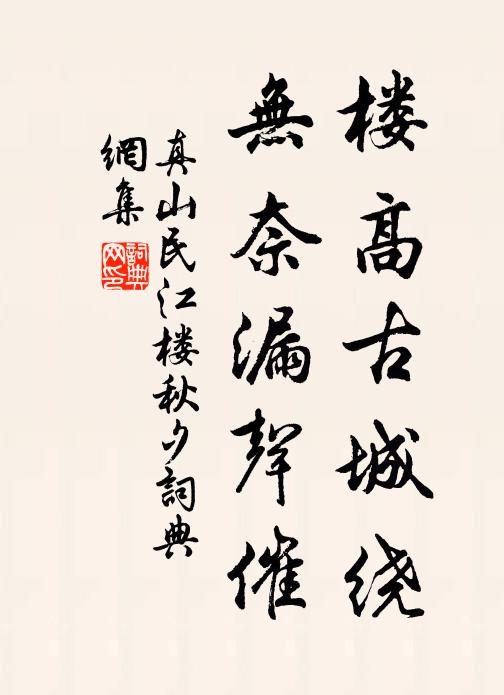 楼高古城绕
無奈漏聲催
真山民江楼秋夕詞典
網集
詞典
网印